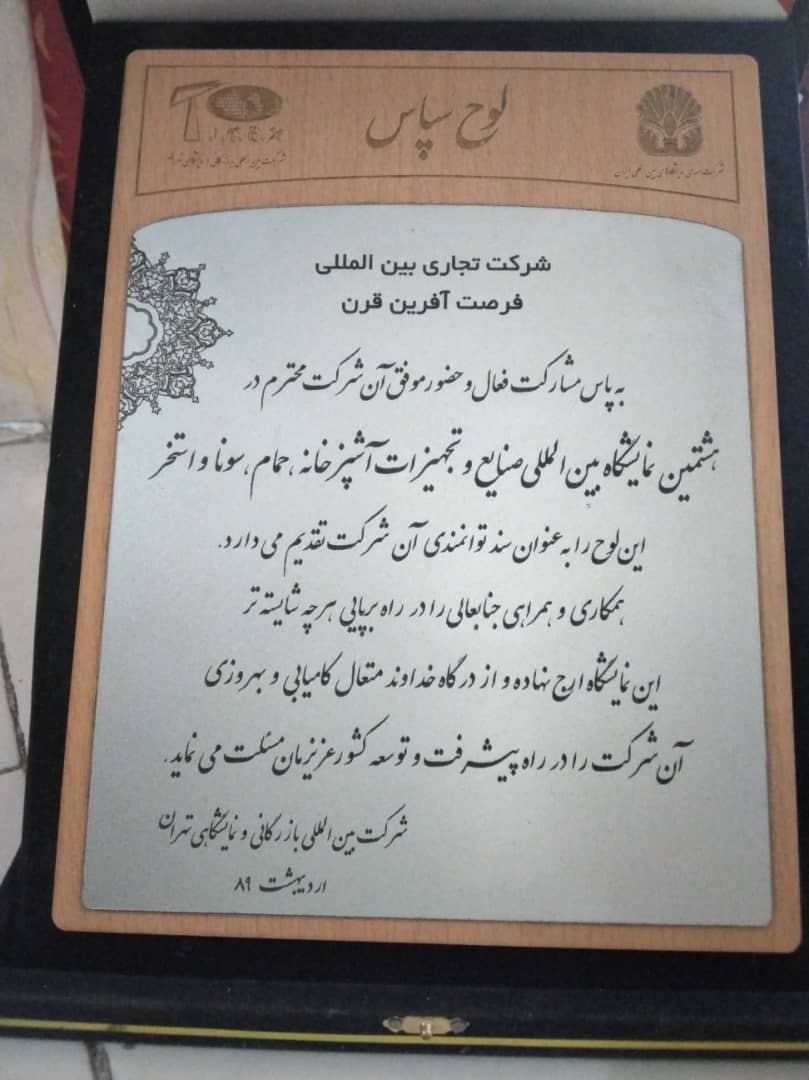 لوح سپاس
شرکت سهامی نمایشگاههای بین المللی ایران
شرکت تجاری بین المللی
فرصت آفرین قرن
به پاس مشارکت فعال و حضور موفق آن شرکت محترم در
هشتمین نمایشگاه بین المللی صنایع و تجهیزات آشپزخانه، حمام، سونا و استخر
این لوح را به عنوان سند توانمندی آن شرکت تقدیم می دارد.
همکاری و همراهی جنابعالی را در راه برپایی هرچه شایسته تر
این نمایشگاه ارج نهاده و از درگاه خداوند متعال کامیابی و بهروزی
آن شرکت را در راه پیشرفت و توسعه کشور عزیزمان مسئلت می نماید.
شرکت بین المللی بازرگانی و نمایشگاهی تهران
اردیبهشت ۸۹